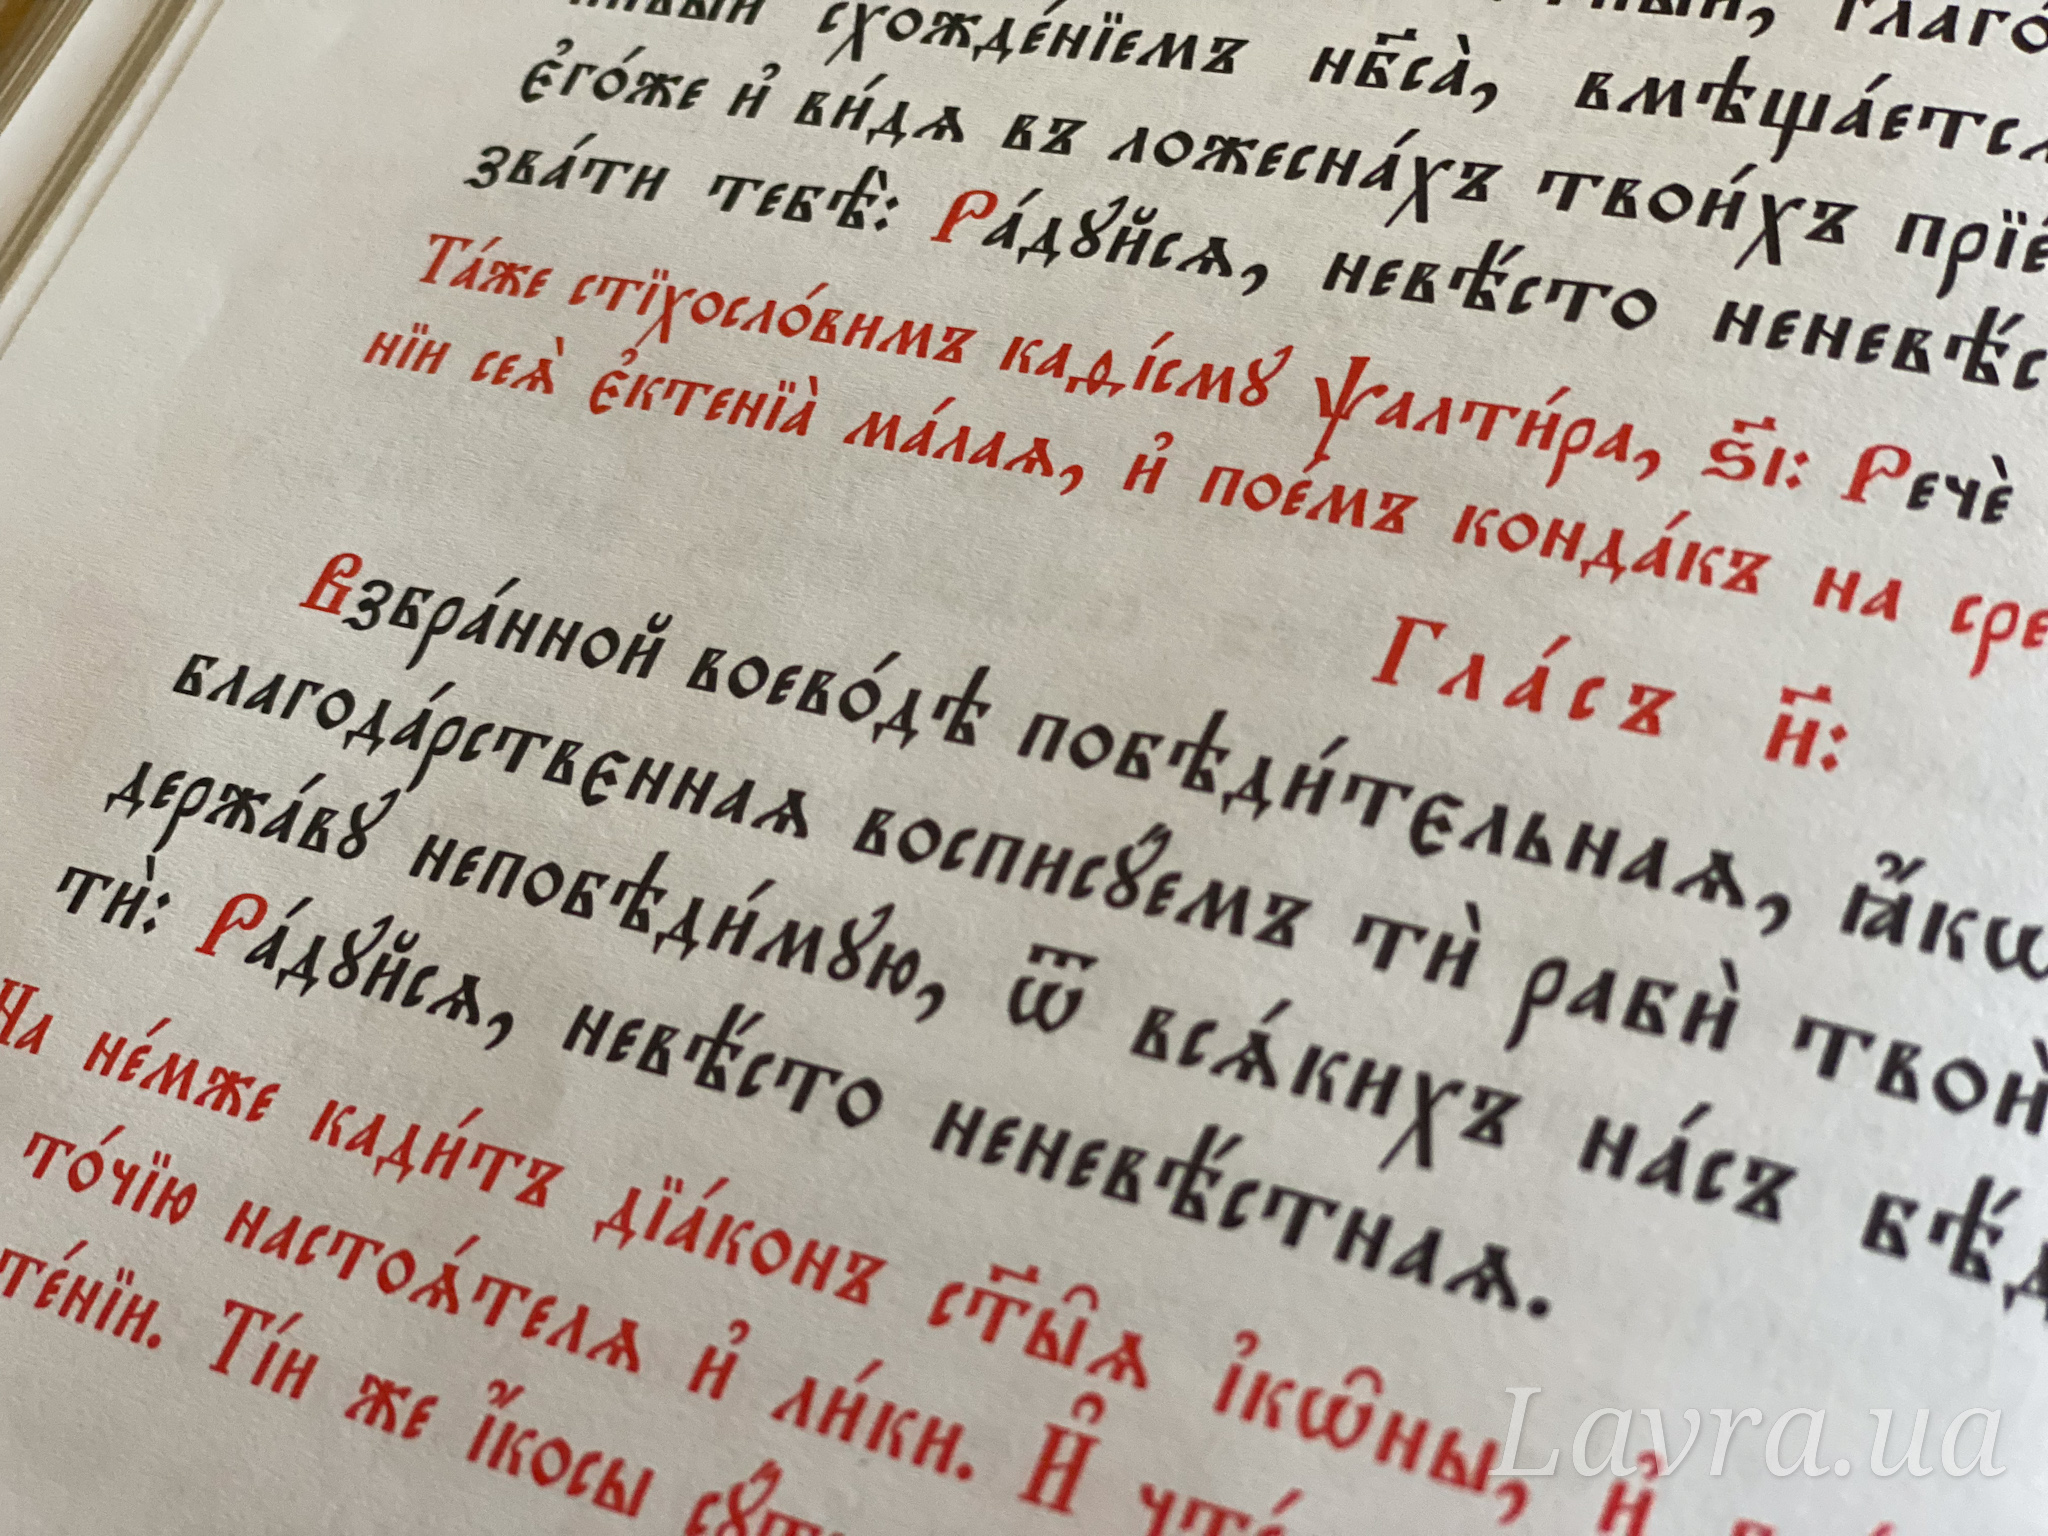 схожде́нїемъ нб҃са̀, вмѣща́етсѧ
є҆го́же и҆ ви́дѧ въ ложесна́хъ твои́хъ
зва́ти тебѣ̀: Ра́дꙋйсѧ, невѣ́сто
Та́же стїхосло́вимъ каѳі́смꙋ ѱалти́ра, ѕ҃і: Речѐ
нїи сеѧ̀ є҆ктенїа̀ ма́лаѧ, и҆ пое́мъ конда́къ на
Гла́съ и҃:
Взбра́нной воево́дѣ побѣди́тєльнаѧ, ꙗ҆́кѡ
благода́рствєннаѧ восписꙋ́емъ тѝ рабѝ твоѝ
держа́вꙋ непобѣди́мꙋю, ѿ всѧ́кихъ на́съ
тѝ: Ра́дꙋйсѧ, невѣ́сто неневѣ́стнаѧ.
На не́мже кади́тъ дїа́конъ ст҃ы̑ѧ і҆кѡ̑ны, и҆
то́чїю настоѧ́телѧ и҆ ли́ки. И҆̑
те́нїи. Ті́и же і҆́косы
Lavra.ua